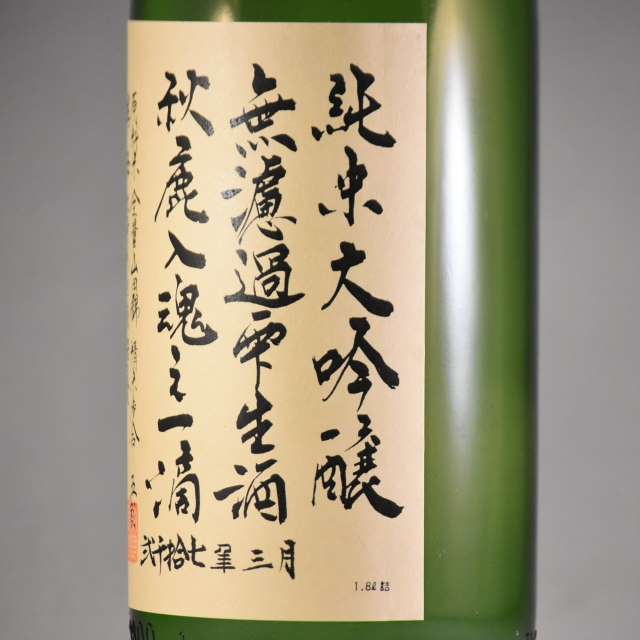 純米大吟醸
無濾過雫生酒
秋鹿入魂之一滴
弐千拾七年三月
原料米 全量山田錦 精米歩合 五
1.8ℓ詰